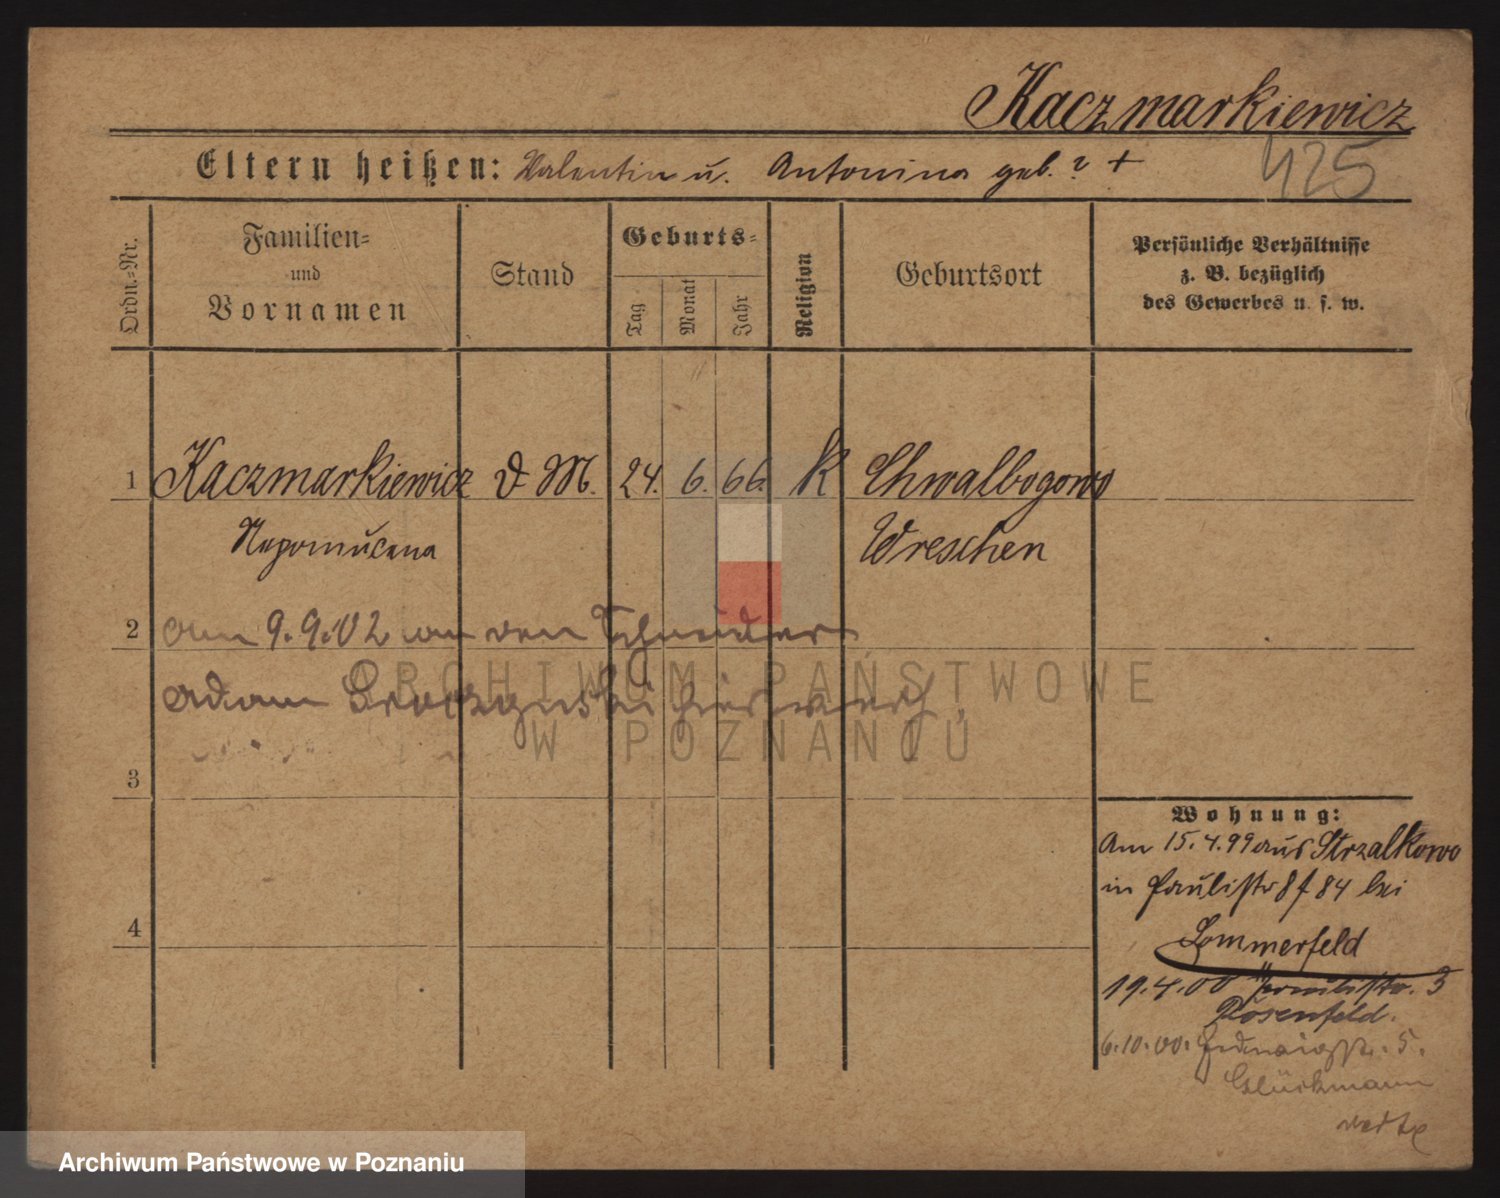 Kaczmarkiewicz
Eltern heißen: Valentin u. Antonina geb. ? +
425
Ordn.-Nr.
Familien-
und
Vornamen
Stand
Geburts-
Tag
Monat
Jahr
Religion
Geburtsort
Persönliche Verhältnisse
z. B. bezüglich
des Gewerbes u. s. w.
1 Kaczmarkiewicz d. M. 24. 6. 66. K Chwalbogowo
Nepomucena Wreschen
2 am 9.9.02 an den Schneider
Adam hier verh.
ARCHIWUM PAŃSTWOWE
W POZNANIU
3
4
Wohnung:
Am 15.4.99 aus Strzalkowo
in Paulistr 8 f 84 bei
Sommerfeld
19.4.00 Paulistr. 3
Rosenfeld.
6.10.00. Hedwigstr. 5.
Glückmann
Archiwum Państwowe w Poznaniu